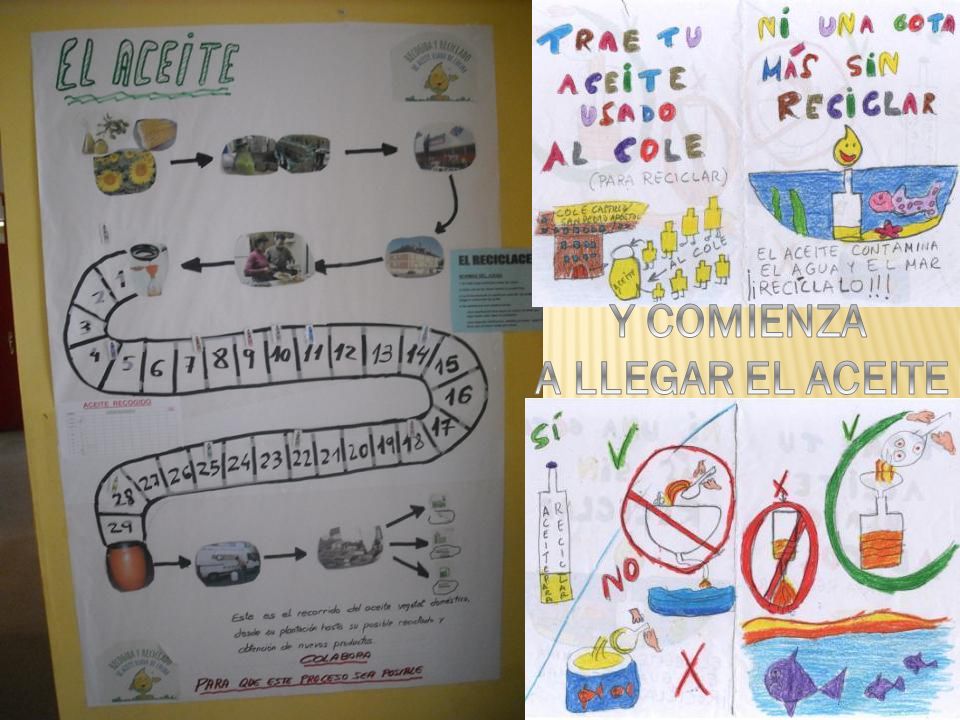 EL ACEITE
RECOGIDA Y RECICLADO
DE ACEITE USADO DE COCINA
EL RECICLACE
NORMAS DEL JUEGO
1
2
3
4
5
6
7
8
9
10
11
12
13
14
15
16
17
18
19
20
21
22
23
24
25
26
27
28
29
ACEITE RECOGIDO
Este es el recorrido del aceite vegetal doméstico,
desde su plantación hasta su posible reciclado y
obtención de nuevos productos.
COLABORA
PARA QUE ESTE PROCESO SEA POSIBLE
RECOGIDA Y RECICLADO
DE ACEITE USADO DE COCINA
TRAE TU
ACEITE
USADO
AL COLE
(PARA RECICLAR)
COLE CASTILLO
SAN PEDRO APOSTOL
AL COLE
Aceite
NI UNA GOTA
MÁS SIN
RECICLAR
EL ACEITE CONTAMINA
EL AGUA Y EL MAR
¡RECICLALO!!!
Y COMIENZA
A LLEGAR EL ACEITE
SÍ
ACEITE PARA
RECICLAR
NO